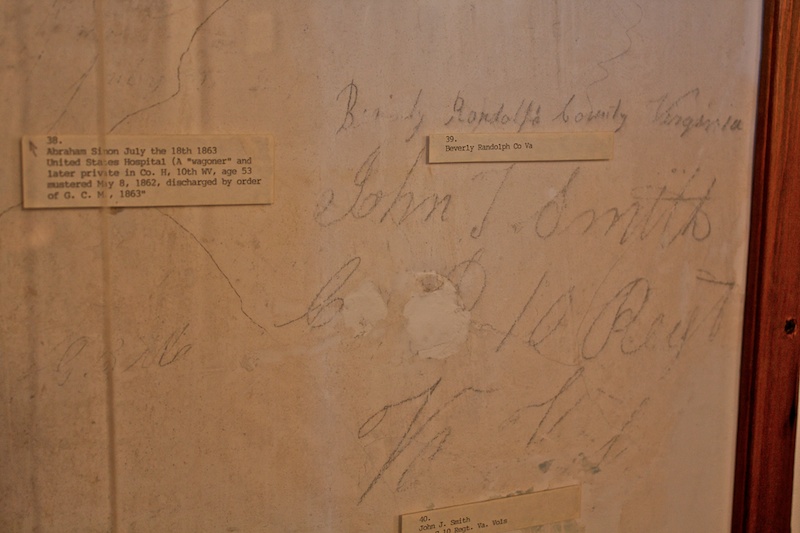 38.
Abraham Simon July the 18th 1863
United States Hospital (A "wagoner" and
later private in Co. H, 10th WV, age 53
mustered May 8, 1862, discharged by order
of G. C. M., 1863"
Randolph County Virginia
39.
Beverly Randolph Co Va
John T. Smith
10 Regt
40.
John J. Smith
10 Regt. Va. Vols